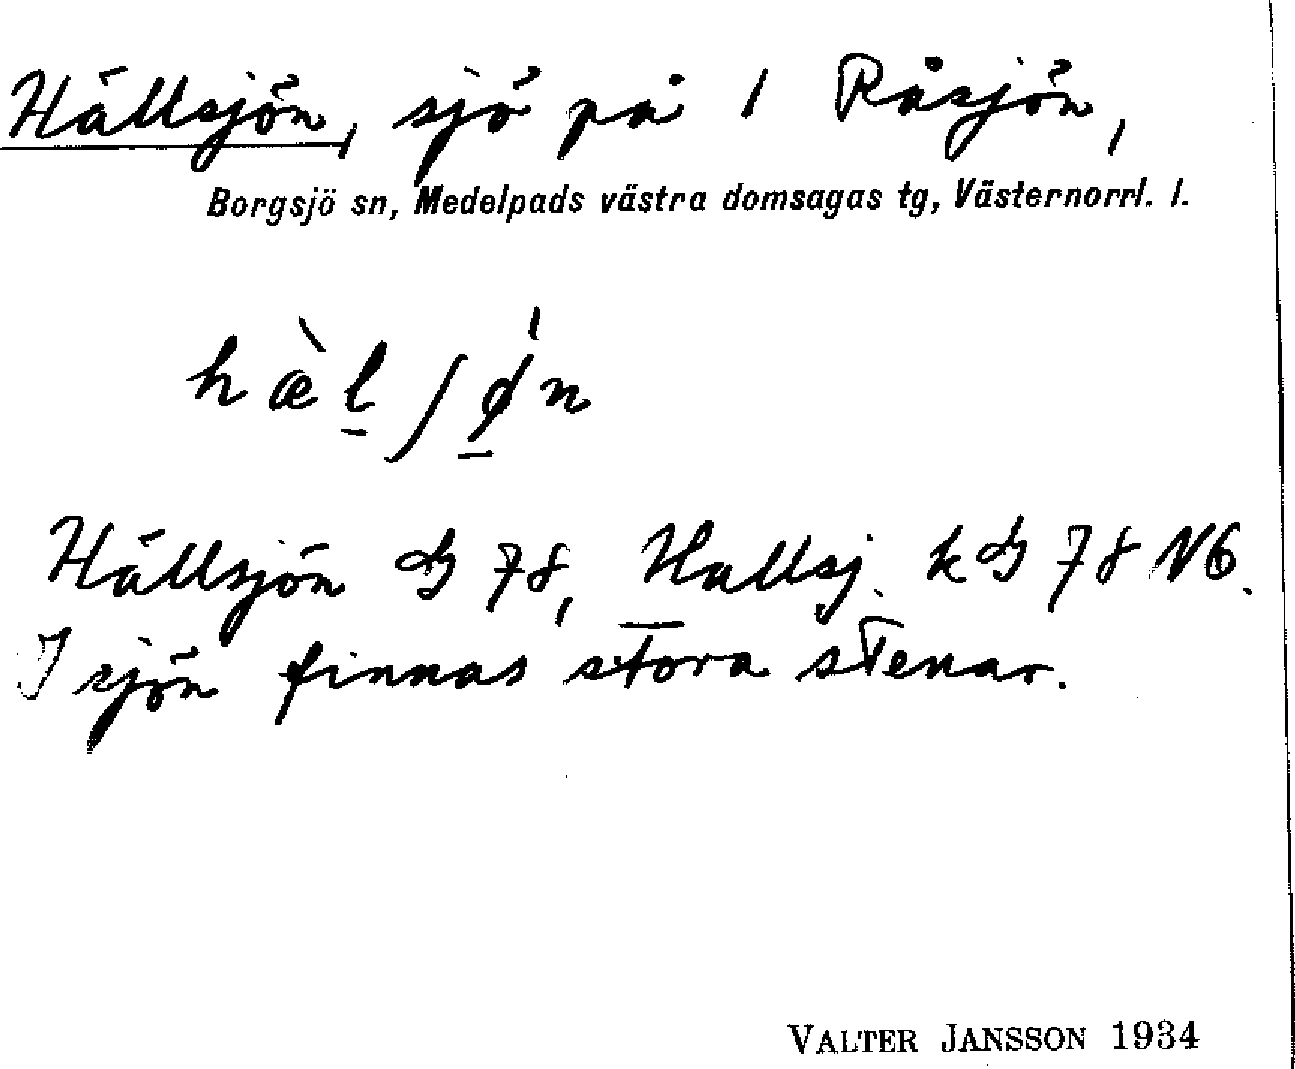 Hällsjön, sjö på 1 Råsjön,
Borgsjö sn, Medelpads västra domsagas tg, Västernorrl. l.
hæ̀l̠ʃǿ̠n
Hällsjön 78, Hallsj. k 78 NV6.
I sjön finnas stora stenar.
VALTER JANSSON 1934